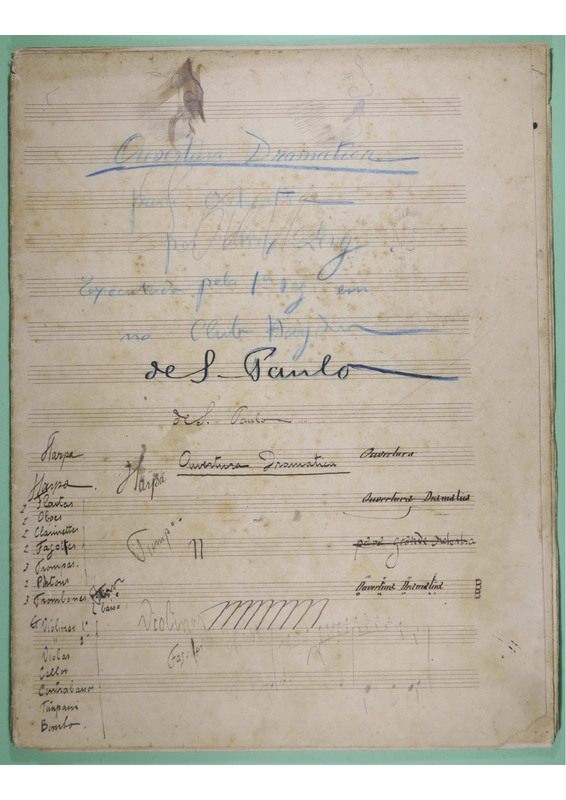 Ouvertura Dramatica
para
por Levy
Executada pela 1ª vez em
no Club Haydn
de S. Paulo
de S. Paulo
Harpa
Harpa
Ouvertura Dramatica
Ouvertura
Harpa.
2 Flautas
2 Oboes
2 Clarinettes
2 Fagottes
3 Trompas.
2 Pistons
3 Trombones
Violinos 1º
2º
Violas
Cellos
Contrabasso
Timpani
Bombo.
Timp
Violinos
Fagottes
Ouvertura Dramatica
para grande Orchestra
Ouvertura Dramatica
B
B
B